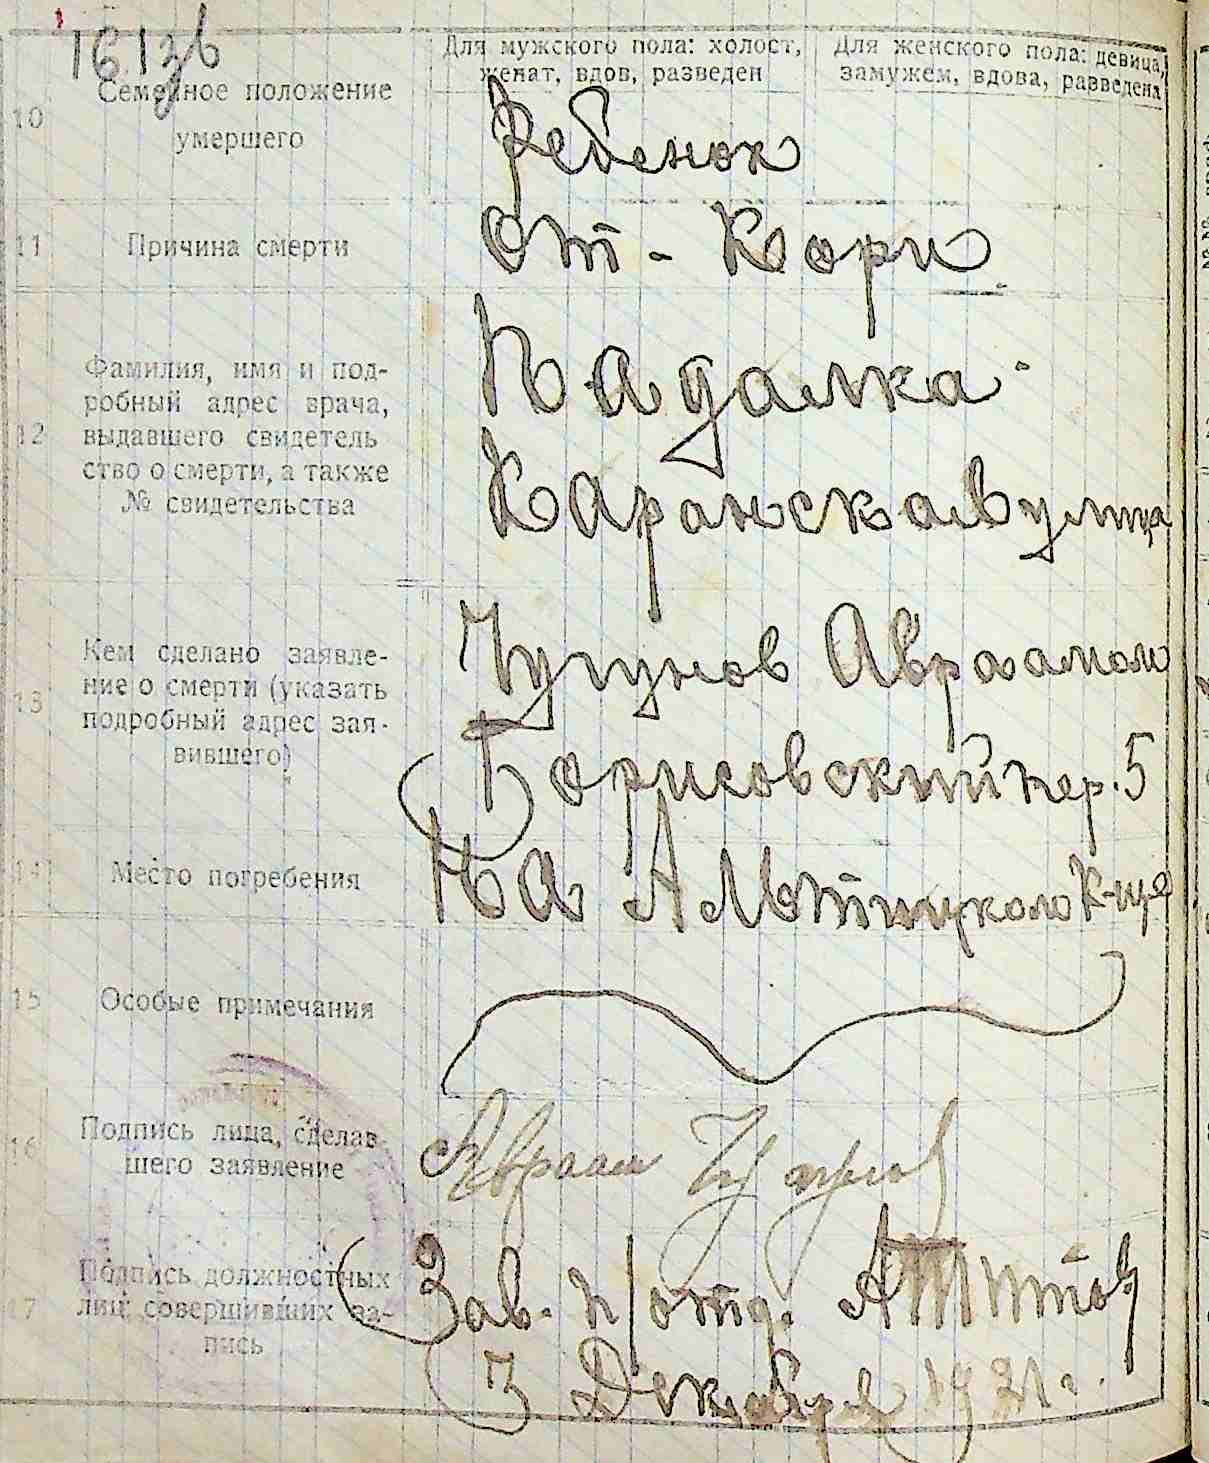 Для мужского пола: холост,
женат, вдов, разведен
Для женского пола: девица,
замужем, вдова, разведена
10
Семейное положение
умершего
Ребенок
11
Причина смерти
От - Кори
12
Фамилия, имя и под-
робный адрес врача,
выдавшего свидетель
ство о смерти, а также
№ свидетельства
Падалка
улица
13
Кем сделано заявле-
ние о смерти (указать
подробный адрес зая-
вившего)
Чугунов Авраамом
Борисовский пер. 5
14
Место погребения
На К-ще
15
Особые примечания
16
Подпись лица, сделав-
шего заявление
Авраам Чугунов
17
Подпись должностных
лиц, совершивших за-
пись
Зав. п/отд. АТитов
3 Декабря 1921 г.